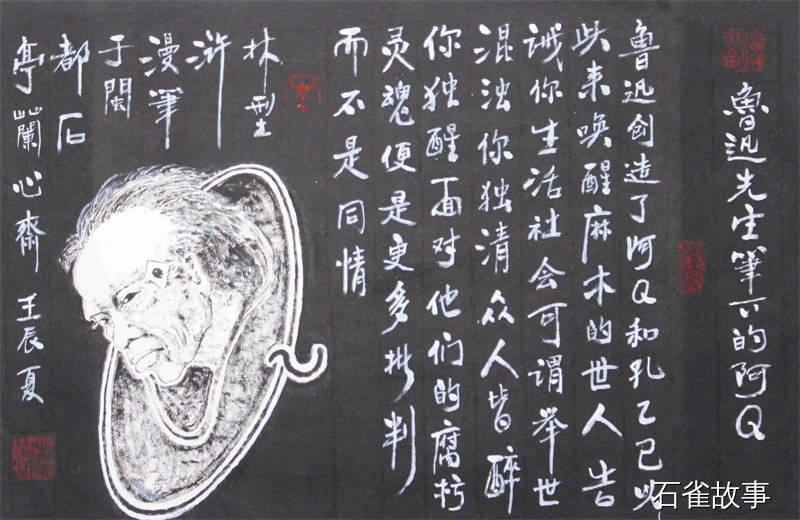 魯迅先生筆下的阿Q
鲁迅创造了阿Q和孔乙己以
此来唤醒麻木的世人告
诫你生活社会可谓举世
混浊你独清众人皆醉
你独醒面对他们的腐朽
灵魂便是更多批判
而不是同情
林型
浒
漫筆
于閩
都石
亭蘭心齋 壬辰夏
石雀故事